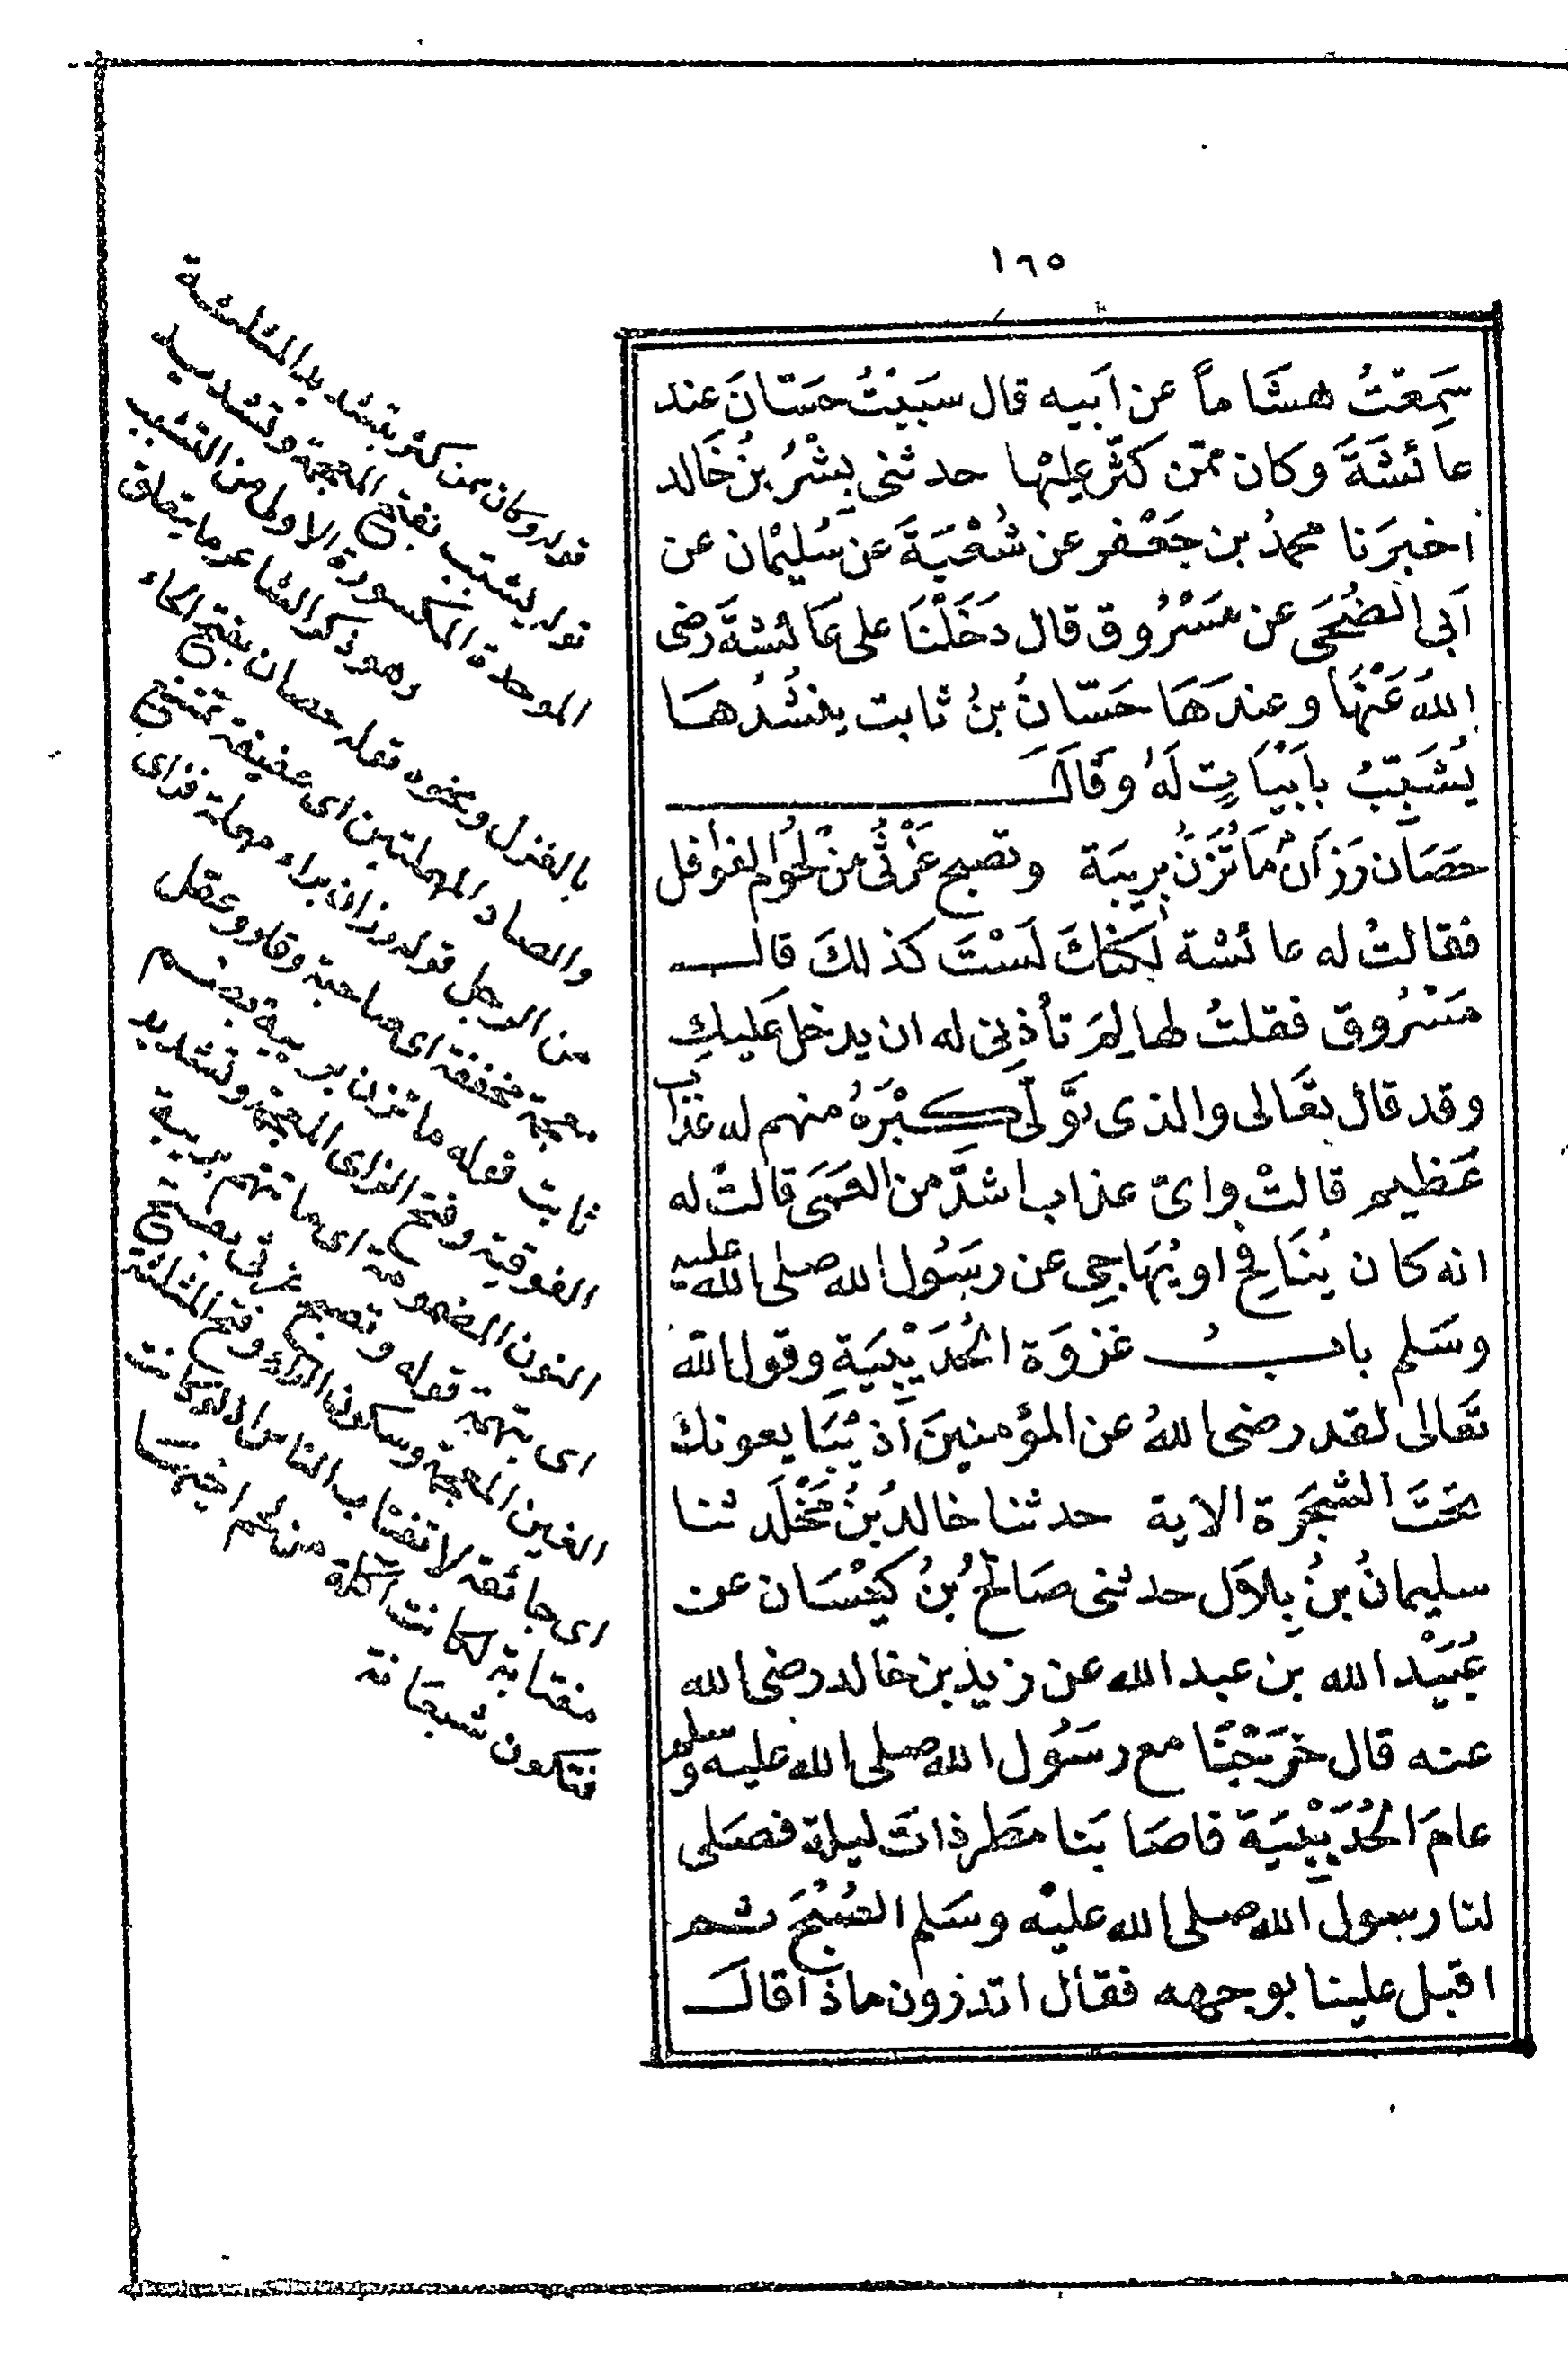 ١٦٥
سَمِعْتُ هشَاماً عن اَبيه قال سَبَبْتُ حَسّانَ عند
عائشَةَ وكان ممّن كثّر عليْها حدثنى بِشْرُ بنُ خَالد
اخبرَنا محمدُ بن جَعْفر عن شُعْبَةَ عن سُليْمان عن
اَبى الضُحَى عن مَسْرُوق قال دَخَلْنَا على عَائشةَ رضى
اللهُ عَنْهُا وعندهَا حَسّانُ بنُ ثابت ينشُدُهَا
يُشَبِّبُ بابَيْاَتٍ لَهُ وقَالَ
حصَان رَزَانٌ مَا تُزَنُّ بِرِيبَة وتصبح غَرْثى مِنْ لحُوم الغوافل
فقالتْ له عائشة لكنّكَ لَسْتَ كذلكَ قال
مَسْرُوق فقلتُ لها لِمَ تأذِنى له ان يدخل عَليكِ
وقد قال تعَالى والذى تَوَلّى كِبْرَهُ منهم له عذاب
عَظيم قالتْ واىّ عذاب اشدُّ من العَمَى قالتْ له
انه كان يُنَافح او يُهَاجى عن رسَوُل الله صلى الله عليه
وسَلم بابُ غزوَة الحُدَيْبيَةِ وقول الله
تعَالى لقد رضى اللهُ عن المؤمنينَ اذ يُبَايعونك
تحْتَ الشجَرة الاية حدثنا خالدُ بنُ مَخْلَد ثنا
سليمانُ بنُ بِلاَل حدثنى صَالحُ بنُ كيْسَان عن
عُبَيْد الله بن عبد الله عن زيد بن خالد رضى الله
عنه قال خرَجْنَا مع رسَوُل الله صلى الله عليه وسلم
عامَ الحُدَيْبيَة فاصَابَنا مطَر ذاتَ ليلة فصَلى
لنا رسول الله صلى الله عليْه وسَلم الصُبْحَ ثم
اقبل علينا بوجهه فقال اتدرون ماذا قالَ
قوله وكان ممن كثر بتشديد المثلثة
قوله يشبب بفتح المعجمة وتشديد
الموحدة المكسورة الاولى من التشبيب
وهو ذكر الشاعر ما يتعلق
بالغزل ونحوه قوله حصان بفتح الحاء
والصاد المهملتين اى عفيفة تمتنع
من الرجل قوله رزان براء مهملة فزاى
معجمة مخففة اى صاحبة وقار وعقل
ثابت قوله ما تزن بريبة بضم
الفوقية وفتح الزاى المعجمة وتشديد
النون المضمومة اى ما تتهم بريبة
اى بتهمة قوله وتصبح غرثى بفتح
الغين المعجمة وسكون الراء وفتح المثلثة
اى جائعة لا تغتاب الناس اذ لو كانت
مغتابة لكانت آكلة من لحم اخيها
فتكون شبعانة